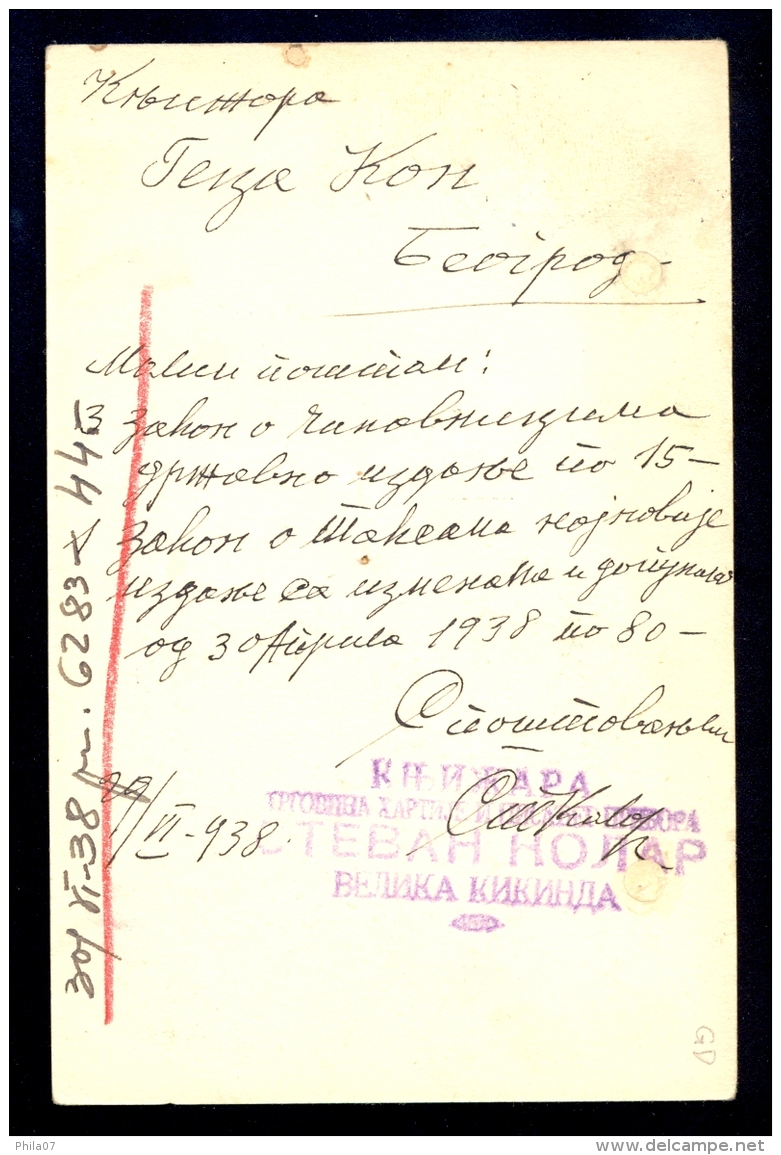 Књижара
Геца Кон
Београд
Молим поштом:
3 Закон о чиновницима
државно издање по 15-
1 Закон о Таксама најновије
издање са изменама и допунама
од 30 Априла 1938 по 80-
С поштовањем
КЊИЖАРА
ТРГОВИНА ХАРТИЈЕ И ПИСАЋЕГ ПРИБОРА
СТЕВАН НОЛАР
ВЕЛИКА КИКИНДА
29/VI-938.
30/VI-38 6283 x 445
GD
Phila07
www.delcampe.net